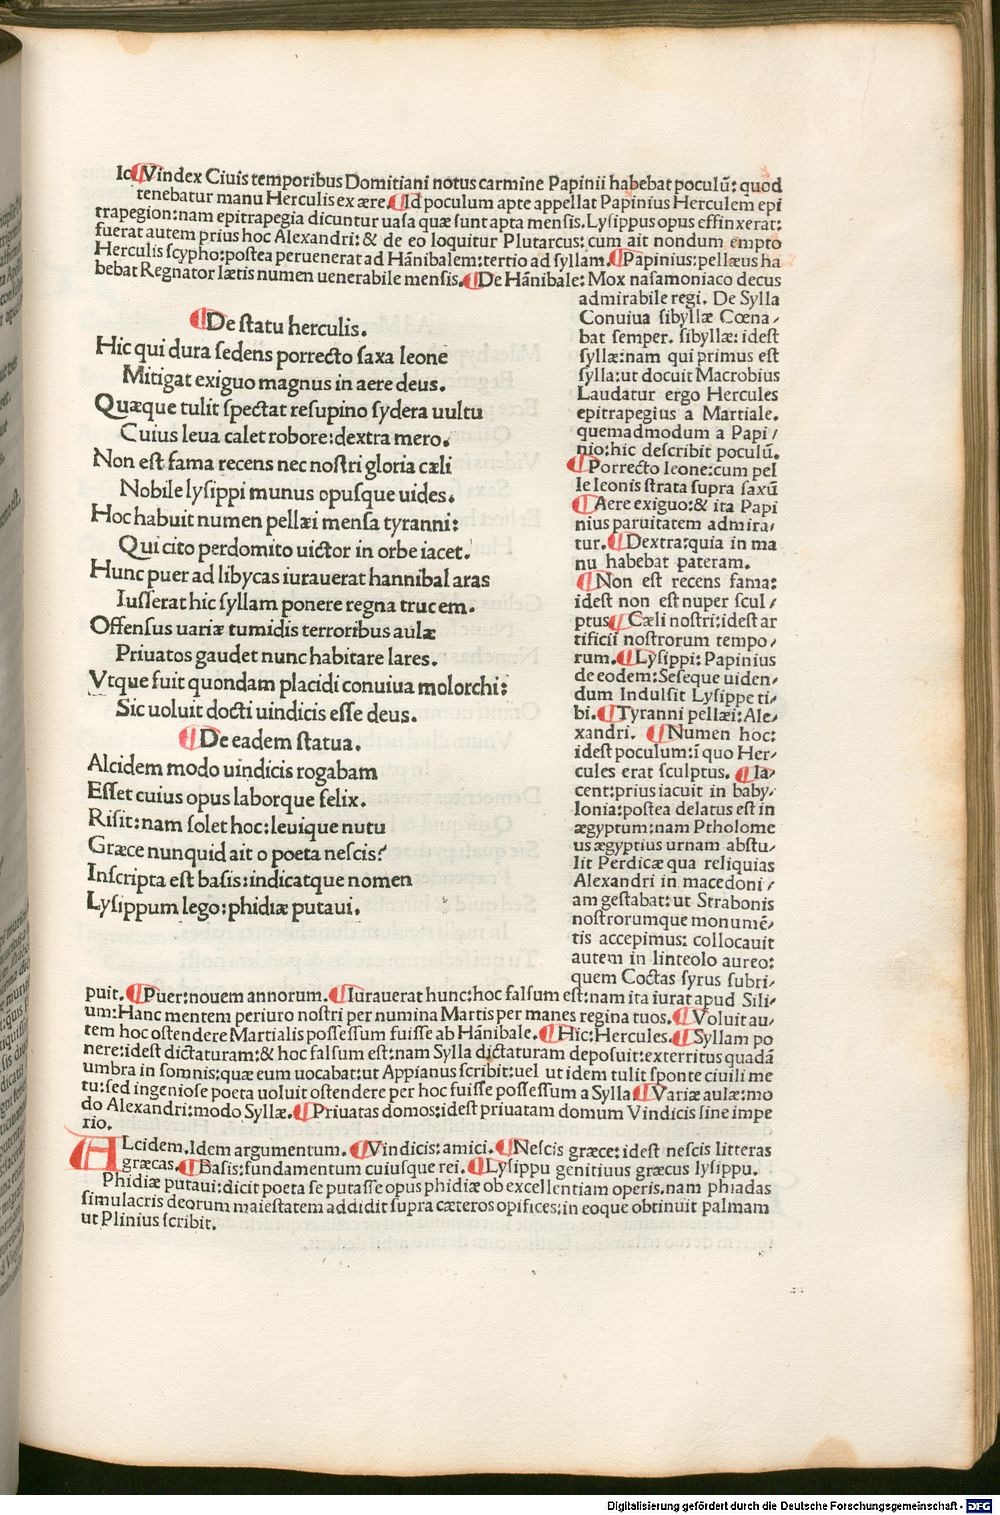 Ic Vindex Ciuis temporibus Domitiani notus carmine Papinii habebat poculū: quod
tenebatur manu Herculis ex ære. Id poculum apte appellat Papinius Herculem epi
trapegion: nam epitrapegia dicuntur uasa quæ sunt apta mensis. Lysippus opus effinxerat:
fuerat autem prius hoc Alexandri: & de eo loquitur Plutarcus: cum ait nondum empto
Herculis scypho: postea peruenerat ad Hānibalem: tertio ad syllam. Papinius: pellæus ha
bebat Regnator lætis numen uenerabile mensis. De Hānibale: Mox nasamoniaco decus
admirabile regi. De Sylla
Conuiua sibyllæ Cœna/
bat semper. sibyllæ: idest
syllæ: nam qui primus est
sylla: ut docuit Macrobius
Laudatur ergo Hercules
epitrapegius a Martiale.
quemadmodum a Papi/
nio: hic describit poculū.
Porrecto leone: cum pel
le leonis strata supra saxū
Aere exiguo: & ita Papi
nius paruitatem admira/
tur. Dextra: quia in ma
nu habebat pateram.
Non est recens fama:
idest non est nuper scul/
ptus Cæli nostri: idest ar
tificii nostrorum tempo/
rum. Lysippi: Papinius
de eodem: Seseque uiden/
dum Indulsit Lysippe ti/
bi. Tyranni pellæi: Ale/
xandri. Numen hoc:
idest poculum: ī quo Her/
cules erat sculptus. Ia/
cent: prius iacuit in baby/
lonia: postea delatus est in
ægyptum: nam Ptholome
us ægyptius urnam abstu/
lit Perdicæ qua reliquias
Alexandri in macedoni/
am gestabat: ut Strabonis
nostrorumque monumē/
tis accepimus: collocauit
autem in linteolo aureo:
quem Coctas syrus subri/
De statu herculis.
Hic qui dura sedens porrecto saxa leone
Mitigat exiguo magnus in aere deus.
Quæque tulit spectat resupino sydera uultu
Cuius leua calet robore: dextra mero.
Non est fama recens nec nostri gloria cæli
Nobile lysippi munus opusque uides.
Hoc habuit numen pellæi mensa tyranni:
Qui cito perdomito uictor in orbe iacet.
Hunc puer ad libycas iurauerat hannibal aras
Iusserat hic syllam ponere regna trucem.
Offensus uariæ tumidis terroribus aulæ
Priuatos gaudet nunc habitare lares.
Vtque fuit quondam placidi conuiua molorchi:
Sic uoluit docti uindicis esse deus.
De eadem statua.
Alcidem modo uindicis rogabam
Esset cuius opus laborque felix.
Risit: nam solet hoc: leuique nutu
Græce nunquid ait o poeta nescis?
Inscripta est basis: indicatque nomen
Lysippum lego: phidiæ putaui.
puit. Puer: nouem annorum. Iurauerat hunc: hoc falsum est: nam ita iurat apud Sili/
um: Hanc mentem periuro nostri per numina Martis per manes regina tuos. Voluit au/
tem hoc ostendere Martialis possessum fuisse ab Hānibale. Hic: Hercules. Syllam po
nere: idest dictaturam: & hoc falsum est: nam Sylla dictaturam deposuit: exterritus quadā
umbra in somnis: quæ eum uocabat: ut Appianus scribit: uel ut idem tulit sponte ciuili me
tu: sed ingeniose poeta uoluit ostendere per hoc fuisse possessum a Sylla Variæ aulæ: mo
do Alexandri: modo Syllæ. Priuatas domos: idest priuatam domum Vindicis sine impe
rio.
ALcidem. Idem argumentum. Vindicis: amici. Nescis græce: idest nescis litteras
græcas. Basis: fundamentum cuiusque rei. Lysippu genitiuus græcus lysippu.
Phidiæ putaui: dicit poeta se putasse opus phidiæ ob excellentiam operis. nam phiadas
simulacris deorum maiestatem addidit supra cæteros opifices: in eoque obtinuit palmam
ut Plinius scribit.
Digitalisierung gefördert durch die Deutsche Forschungsgemeinschaft - DFG